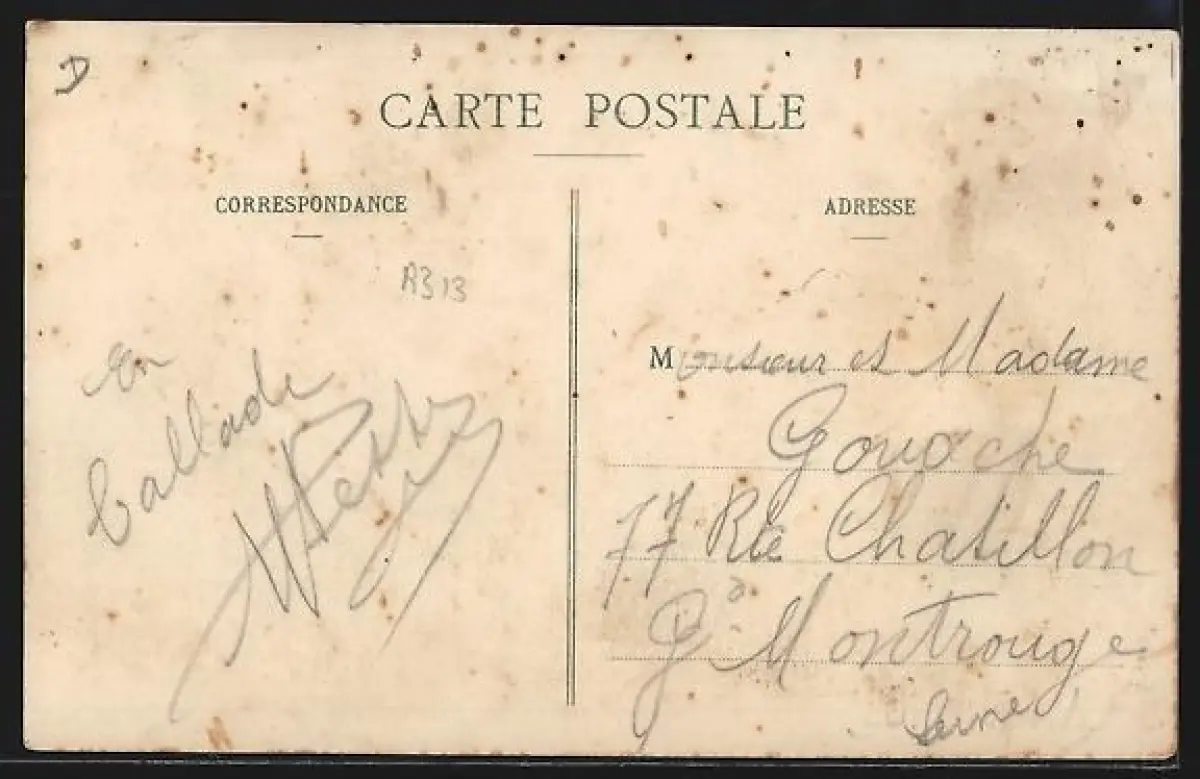 D
CARTE POSTALE
CORRESPONDANCE
ADRESSE
A313
En
ballade
Monsieur et Madame
Gouache
77 Rue Chatillon
à
Gd Montrouge
Seine